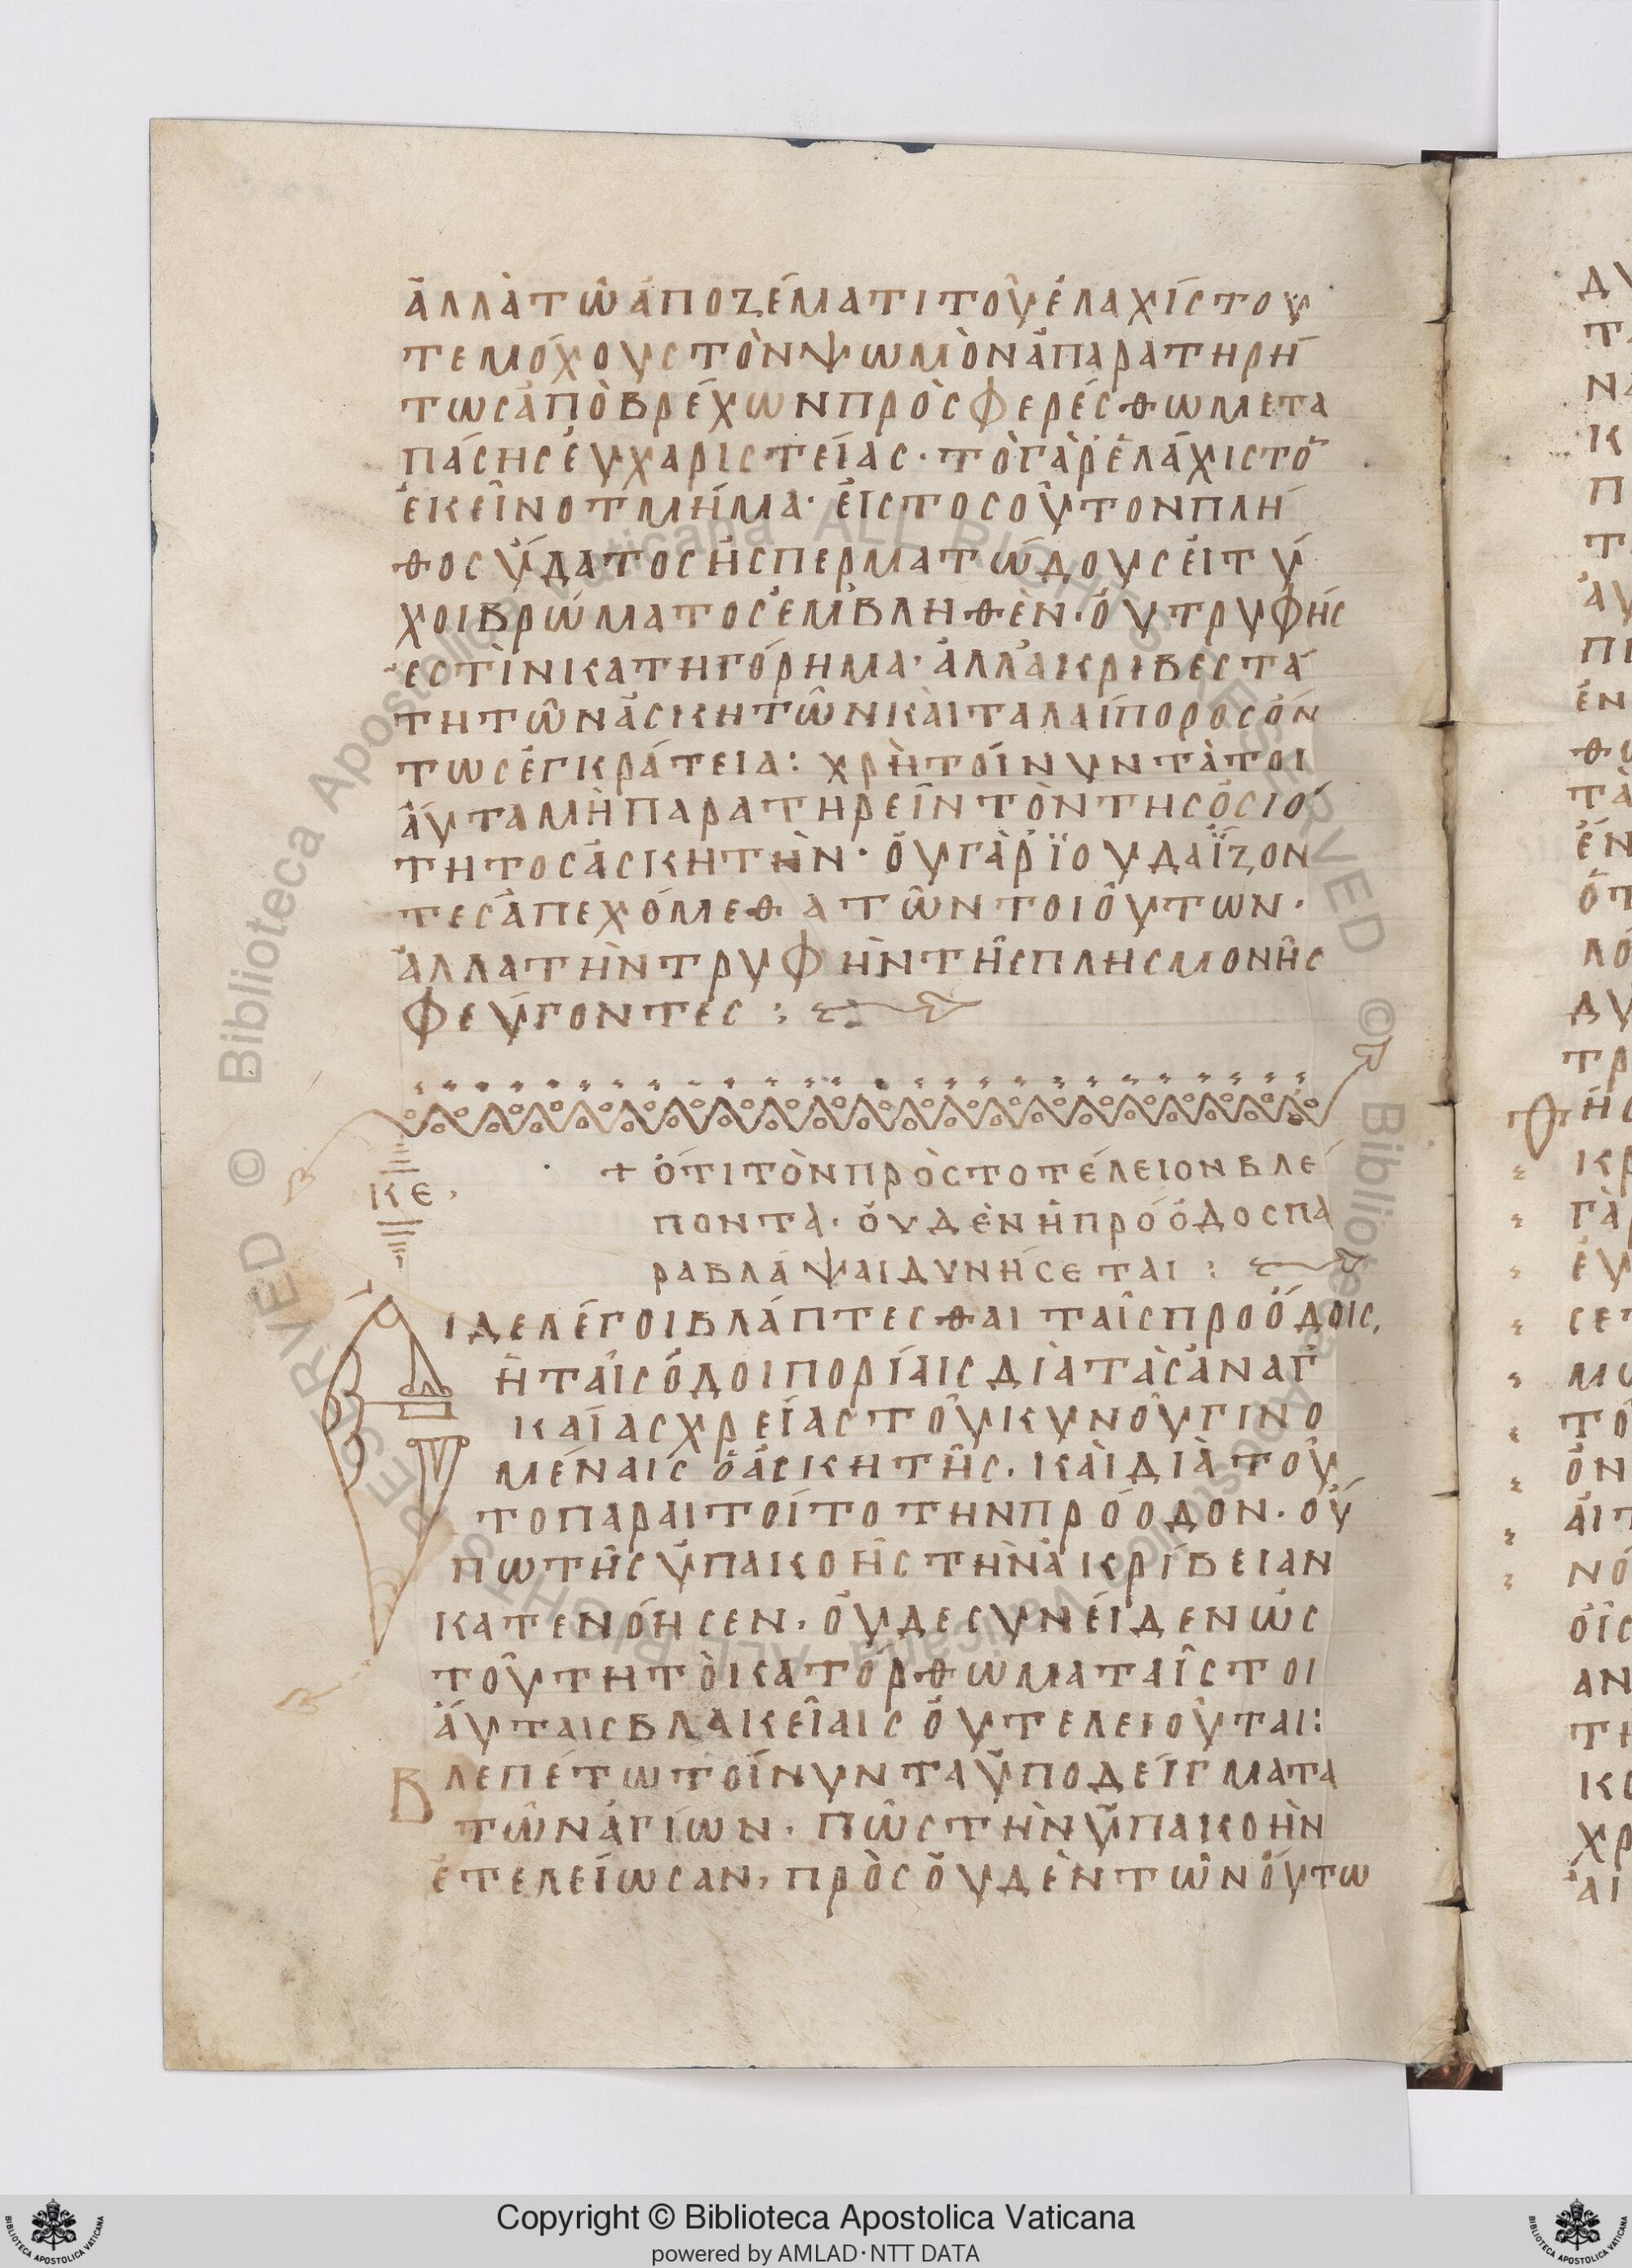 ἀλλὰτῶἀποζέματιτοῦἐλαχίστου
τεμόχουςτὸνψωμὸνἀπαρατηρή
τωςἀπὸβρέχωνπρὸςφερέσθωμετα
πάσηςἐυχαριστείας·τὸγὰρἐλάχιστο
ἐκεῖνοτμήμα·ἐιςτοσοῦτονπλή
θοςὕδατοςἡσπερματώδουςἐιτύ
χοιβρώματοςἐμβληθὲν·ὀυτρυφῆς
ἐστὶνικατηγόρημα·ἀλλἀκριβεστά
τητῶνἀσκητῶνκὰιταλαίποροςὄν
τωςἐγκράτεια: χρὴτοίνυντὰτοι
ἀύταμὴπαρατηρεῖντὸντηςὁσιό
τητοςἀσκητὴν·ὀυγὰρϊουδαΐζον
τεςἀπεχόμεθατῶντοιοῦτων·
ἀλλατὴντρυφὴντῆςπλησμονῆς
φεύγοντες:
κε,
+ὅτιτὸνπρὸςτοτέλειονβλέ
ποντὰ·ὀυδὲνἡπρόόδοςπα
ραβλάψαιδυνήσεται:
Ειδελέγοιβλάπτεσθαιταῖςπροόδοις,
ἢτᾶιςὁδοιπορίαιςδιὰτὰςἀναγ
καίαςχρείαςτοῦκυνοῦγινο
μέναιςὁἀσκητῆς,κὰιδιὰτοῦ
τοπαραιτοίτοτηνπρόοδον·οὔ
πωτῆςὑπαικοῆςτὴνἀκρίβειαν
κατενόησεν,ὀυδεσυνέιδενὡς
τοῦτητὸικατόρθωματαῖςτοι
ἀύταιςβλακεῖαιςὀυτελειοῦται:
Βλεπέτωτοίνυνταὑποδείγματα
τῶνἁγίων·πῶςτὴνὑπαικοὴν
ἐτελείωσαν,πρὸςὀυδὲντῶνὄυτω